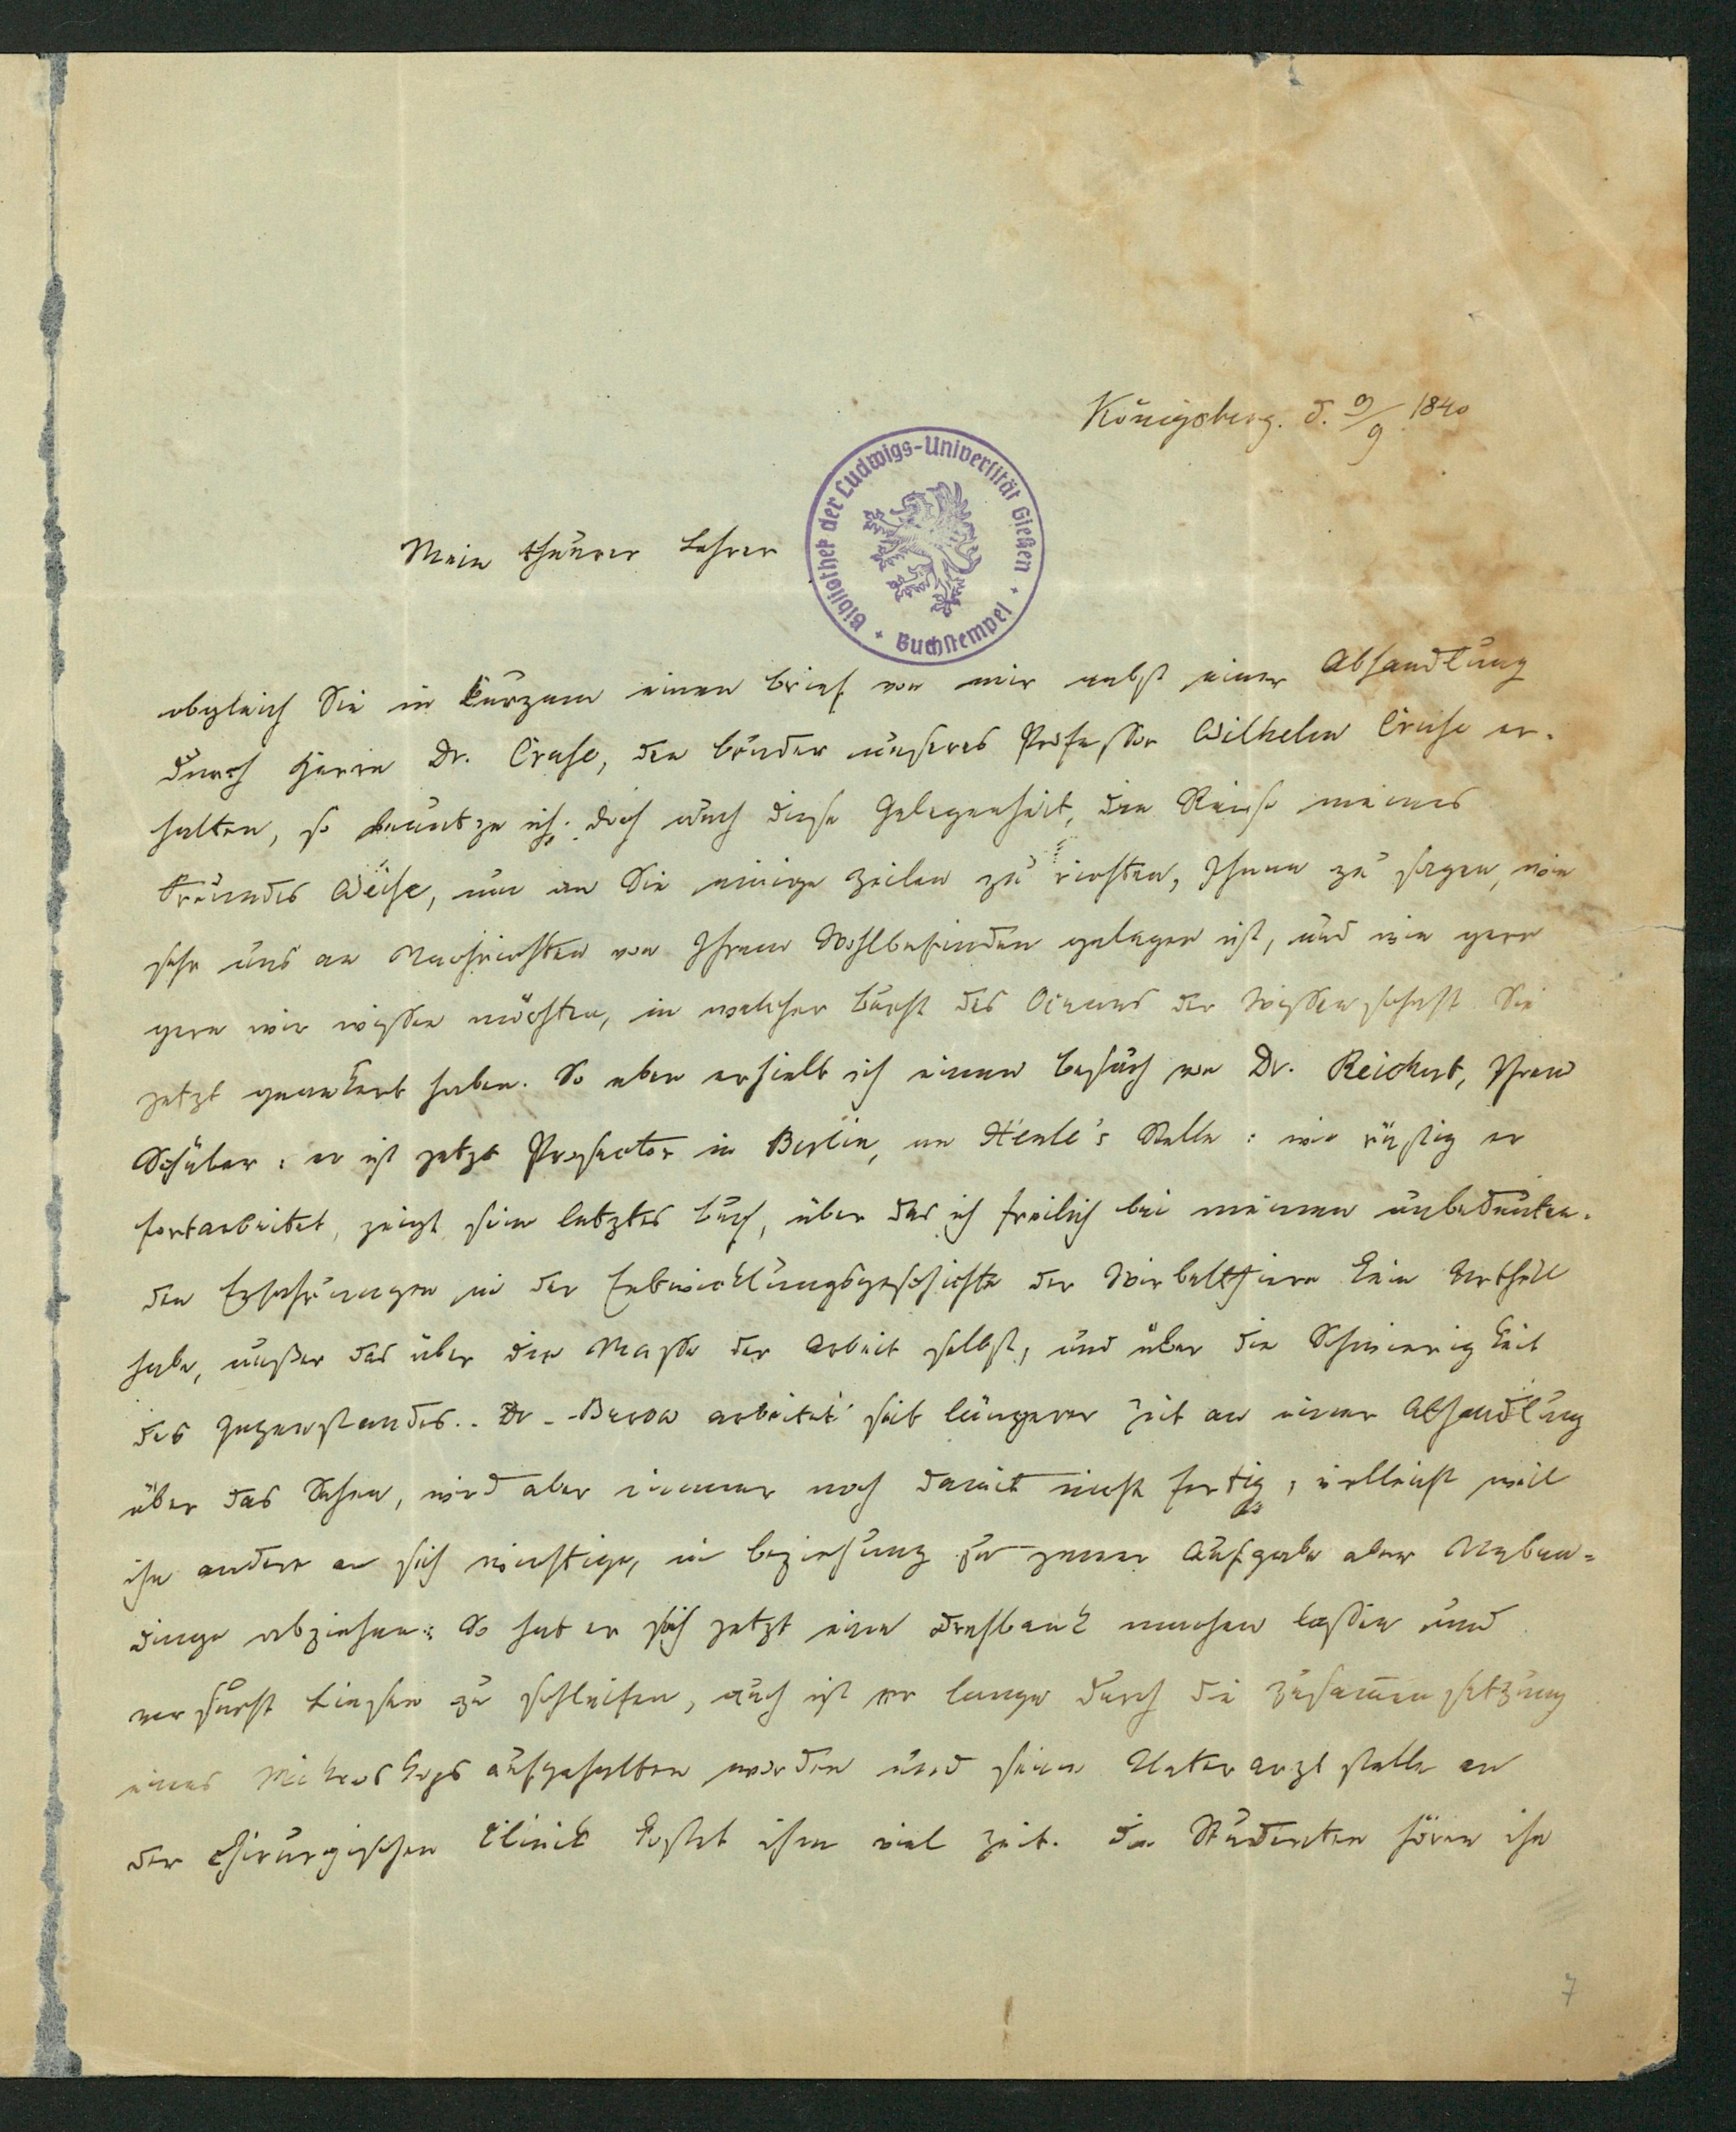 Königsberg. d. 9/9 1840
Bibliothek der Ludwigs-Universität Gießen
Buchstempel
Mein theurer Lehrer
obgleich Sie in Kurzem einen Brief von mir nebst einer Abhandlung
durch Herrn Dr. Cruse, den Bruder unseres Professor Wilhelm Cruse er-
halten, so benutze ich doch auch diese Gelegenheit, die Reise meines
Freundes Weise, um an Sie einige Zeilen zu richten, Ihnen zu sagen, wie
sehr uns an Nachrichten von Ihrem Wohlbefinden gelegen ist, und wie gern
gern wir wissen möchten, in welcher Bucht des Oceans der Wissenschaft Sie
jetzt geankert haben. So eben erhielt ich einen Besuch von Dr. Reichert, Ihrem
Schüler: er ist jetzt Prosector in Berlin, an Henle's Stelle: wie rüstig er
fortarbeitet, zeigt sein letztes Buch, über das ich freilich bei meinen unbedeuten-
den Erfahrungen in der Entwicklungsgeschichte der Wirbelthiere kein Urtheil
habe, außer das über die Masse der Arbeit selbst, und über die Schwierigkeit
des Gegenstandes. Dr. Burow arbeitet seit längerer Zeit an einer Abhandlung
über das Sehen, wird aber immer noch damit nicht fertig, vielleicht weil
ihn andere an sich wichtige, in Beziehung zu jener Aufgabe aber Neben-
dinge abziehen: So hat er sich jetzt eine Drehbank machen lassen und
versucht Linsen zu schleifen, auch ist er lange durch die Zusammensetzung
eines Mikroskops aufgehalten worden und seine Unterarztstelle an
der chirurgischen Clinik kostet ihm viel Zeit. Die Studenten hören ihn
7